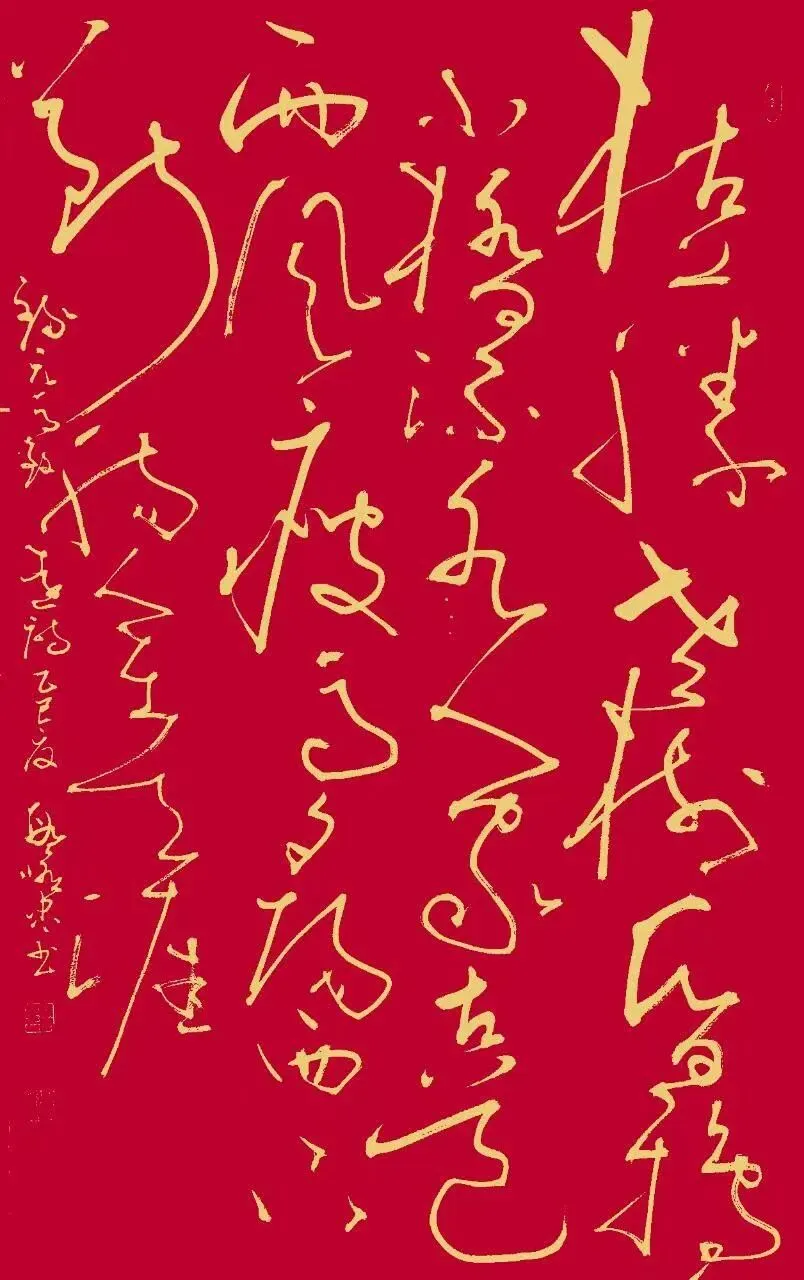 枯藤老樹昏鴉
小橋流水人家古道
西風瘦馬夕陽西下
斷腸人在天涯
錄元馬致遠詞乙巳夏 書